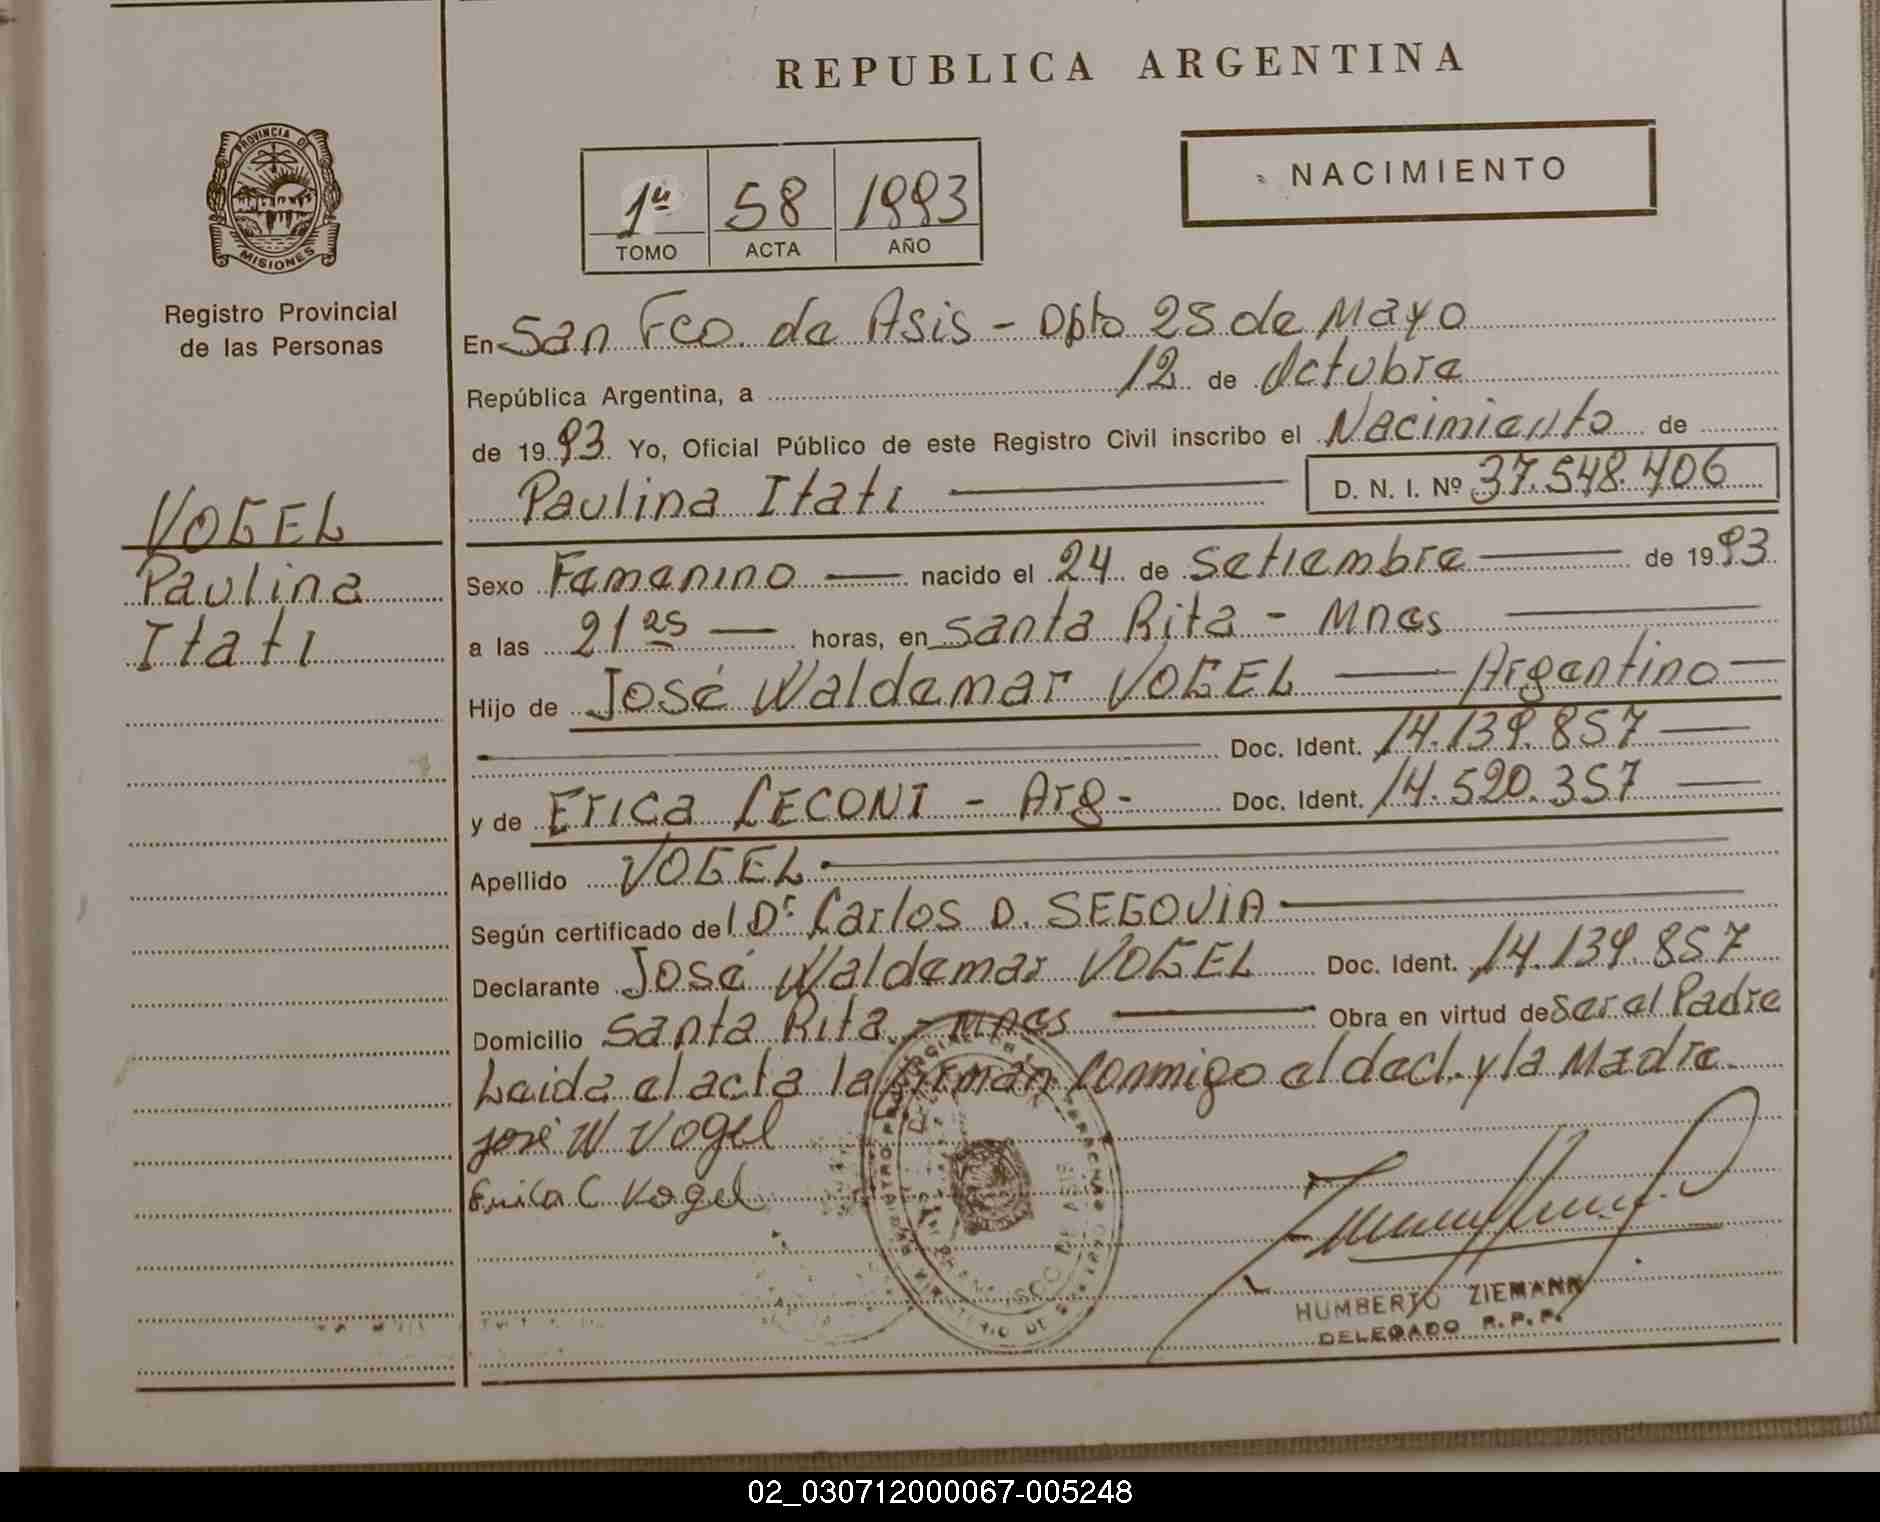 REPUBLICA ARGENTINA
PROVINCIA DE
MISIONES
Registro Provincial
de las Personas
1º 58 1993
TOMO ACTA AÑO
NACIMIENTO
VOGEL
Paulina
Itatí
En San Fco. de Asis - Dpto 25 de Mayo
República Argentina, a 12 de Octubre
de 1993 Yo, Oficial Público de este Registro Civil inscribo el Nacimiento de
Paulina Itati D. N. I. Nº 37.548.406
Sexo Femenino nacido el 24 de Setiembre de 1993
a las 21 25 horas, en Santa Rita - Mnes
Hijo de José Waldemar VOGEL Argentino
Doc. Ident. 14.139.857
y de Erica LECONI - Arg - Doc. Ident. 14.520.357
Apellido VOGEL
Según certificado del Dr Carlos D. SEGOVIA
Declarante José Waldemar VOGEL Doc. Ident. 14.139.857
Domicilio Santa Rita - Mnes Obra en virtud de ser el Padre
Leida el acta la firman conmigo el decl. y la Madre
José W Vogel
Erica C Vogel
HUMBERTO ZIEMANN
DELEGADO R.P.P.
02_030712000067-005248